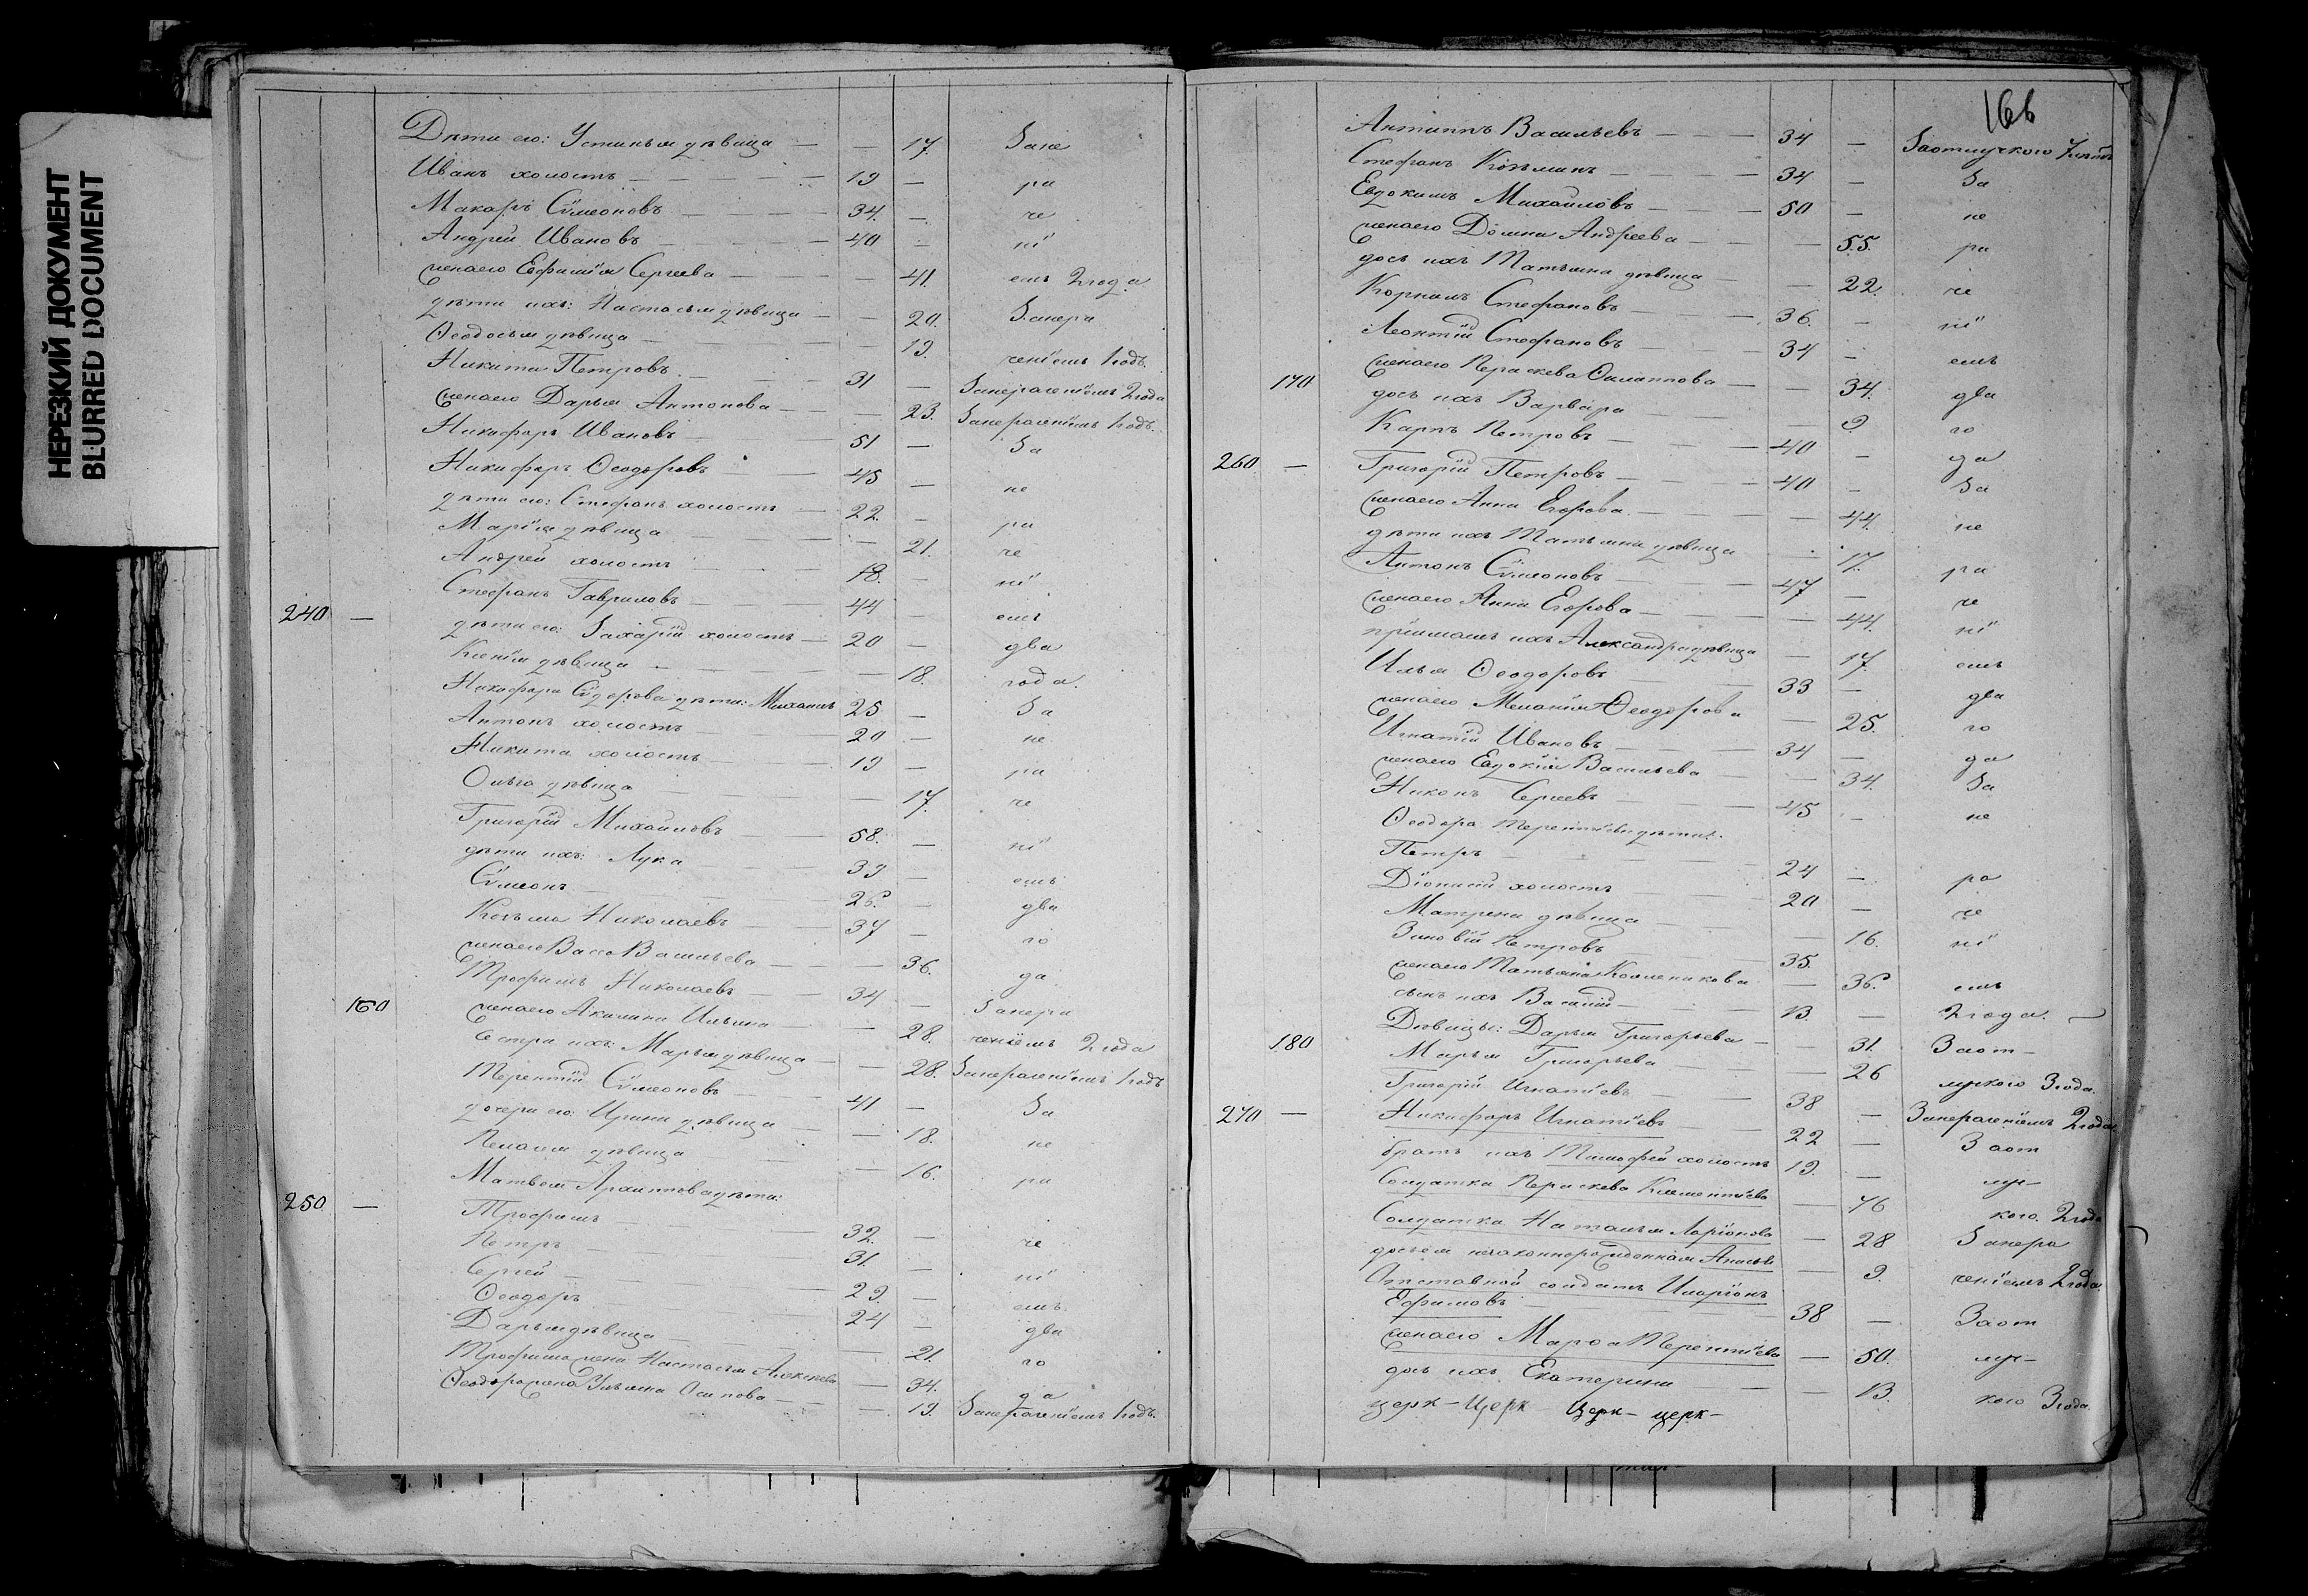 НЕРЕЗКИЙ ДОКУМЕНТ
BLURRED DOCUMENT
Дѣти его: Устинья дѣвица — — 17. Зане
Иванъ холостъ — 19 — ра
Макаръ Сѵмеоновъ — 34. — че
Андрей Ивановъ — 40 — ні
жена его Ефимія Сергеева — — 41. емъ 2 года
дѣти ихъ: Настасья дѣвица — — 20. Занера
Ѳеодосья дѣвица — — 19. ченіемъ 1 годъ.
Никита Петровъ — 31 — Занераченіемъ 2 года
жена его Дарья Антонова — — 23. Занераченіемъ 1 годъ.
Никифоръ Ивановъ — 51 — За
Никифоръ Ѳеодоровъ — 45 — не
дѣти его: Стефанъ холостъ — 22. — ра
Марія дѣвица — — 21. че
Андрей холостъ — 18. — ні
Стефанъ Гавриловъ — 44 — емъ
240 — дѣти его: Захарій холостъ — 20 — два
Ксенія дѣвица — — 18. года.
Никифора Сѵдорова дѣти: Михаилъ 25 — За
Антонъ холостъ — 20 — не
Никита холостъ — 19 — ра
Ольга дѣвица — — 17. че
Григорій Михайловъ — 58. — ні
дѣти ихъ: Лука — 33 — емъ
Сѵмеонъ — 26. — два
Козьма Николаевъ — 37 — го
жена его Васса Васильева — — 36. да
Трофимъ Николаевъ — 34 — Занера
160 жена его Акилина Ильина — — 28. ченіемъ 2 года
Сестра ихъ: Марья дѣвица — — 28. Занераченіемъ 1 годъ
Терентій Сѵмеоновъ — 41 — За
дочери его: Ирина дѣвица — — 18. не
Пелагея дѣвица — — 16. ра
Матвея Архиппова дѣти:
250 — Трофимъ — 32. — че
Петръ — 31. — ні
Сергей — 29. — емъ
Ѳеодоръ — 24 — два
Дарья дѣвица — — 21. го
Трофима жена Настасья Алексеева — 34. да
Ѳеодора жена Ульяна Осипова — — 19. Занераченіемъ 1 годъ.
166
Антипъ Васильевъ — 34 — Заотлучкою
Стефанъ Козьминъ — 34 — За
Евдокимъ Михайловъ — 50 — не
жена его Домна Андреева — — 55. ра
дочь ихъ Татьяна дѣвица — — 22. че
Корнилъ Стефановъ — 36. — ні
Леонтій Стефановъ — 34 — емъ
170 жена его Параскева — — 34. два
дочь ихъ Варвара — — 9. го
Карпъ Петровъ — 40 — да
260 — Григорій Петровъ — 40 — За
жена его Анна Егорова — — 44. не
дѣти ихъ Татьяна дѣвица — 17. ра
Антонъ Сѵмеоновъ — 47 — че
жена его Анна Егорова — — 44. ні
пріимышъ ихъ Александра дѣвица — 17. емъ
Илья Ѳеодоровъ — 33 — два
жена его Меланія Ѳеодорова — 25. го
Игнатій Ивановъ — 34 — да
жена его Евдокія Васильева — 34. За
Никонъ Сергеевъ — 45 — не
Ѳеодора Терентіева дѣти:
Петръ — 24 — ра
Діонисій холостъ — 20 — че
Матрена дѣвица — — 16. ні
Зиновій Петровъ — 35.
жена его Татьяна — 36. емъ
сынъ ихъ Василій — 13. — 2 года.
180 Дѣвицы: Дарья Григорьева — — 31. Заот-
Марья Григорьева — — 26 лучкою 3 года.
Григорій Игнатіевъ — 38 — Занераченіемъ 2 года
270 — Никифоръ Игнатіевъ — 22 — Заот
братъ ихъ Тимофей холостъ 19. — луч-
Солдатка Параскева Климентіева — 46 кою. 2 года
Солдатка Наталья Ларіонова — 28 Занера
дочь ея незаконнорожденная — 9. ченіемъ 2 года
Отставной солдатъ Иларіонъ
Ефимовъ — 38 — Заот
жена его Марѳа Терентіева — 50. луч-
дочь ихъ Екатерина — — 13. кою 3 года.
церк- Церк Церк- церк-